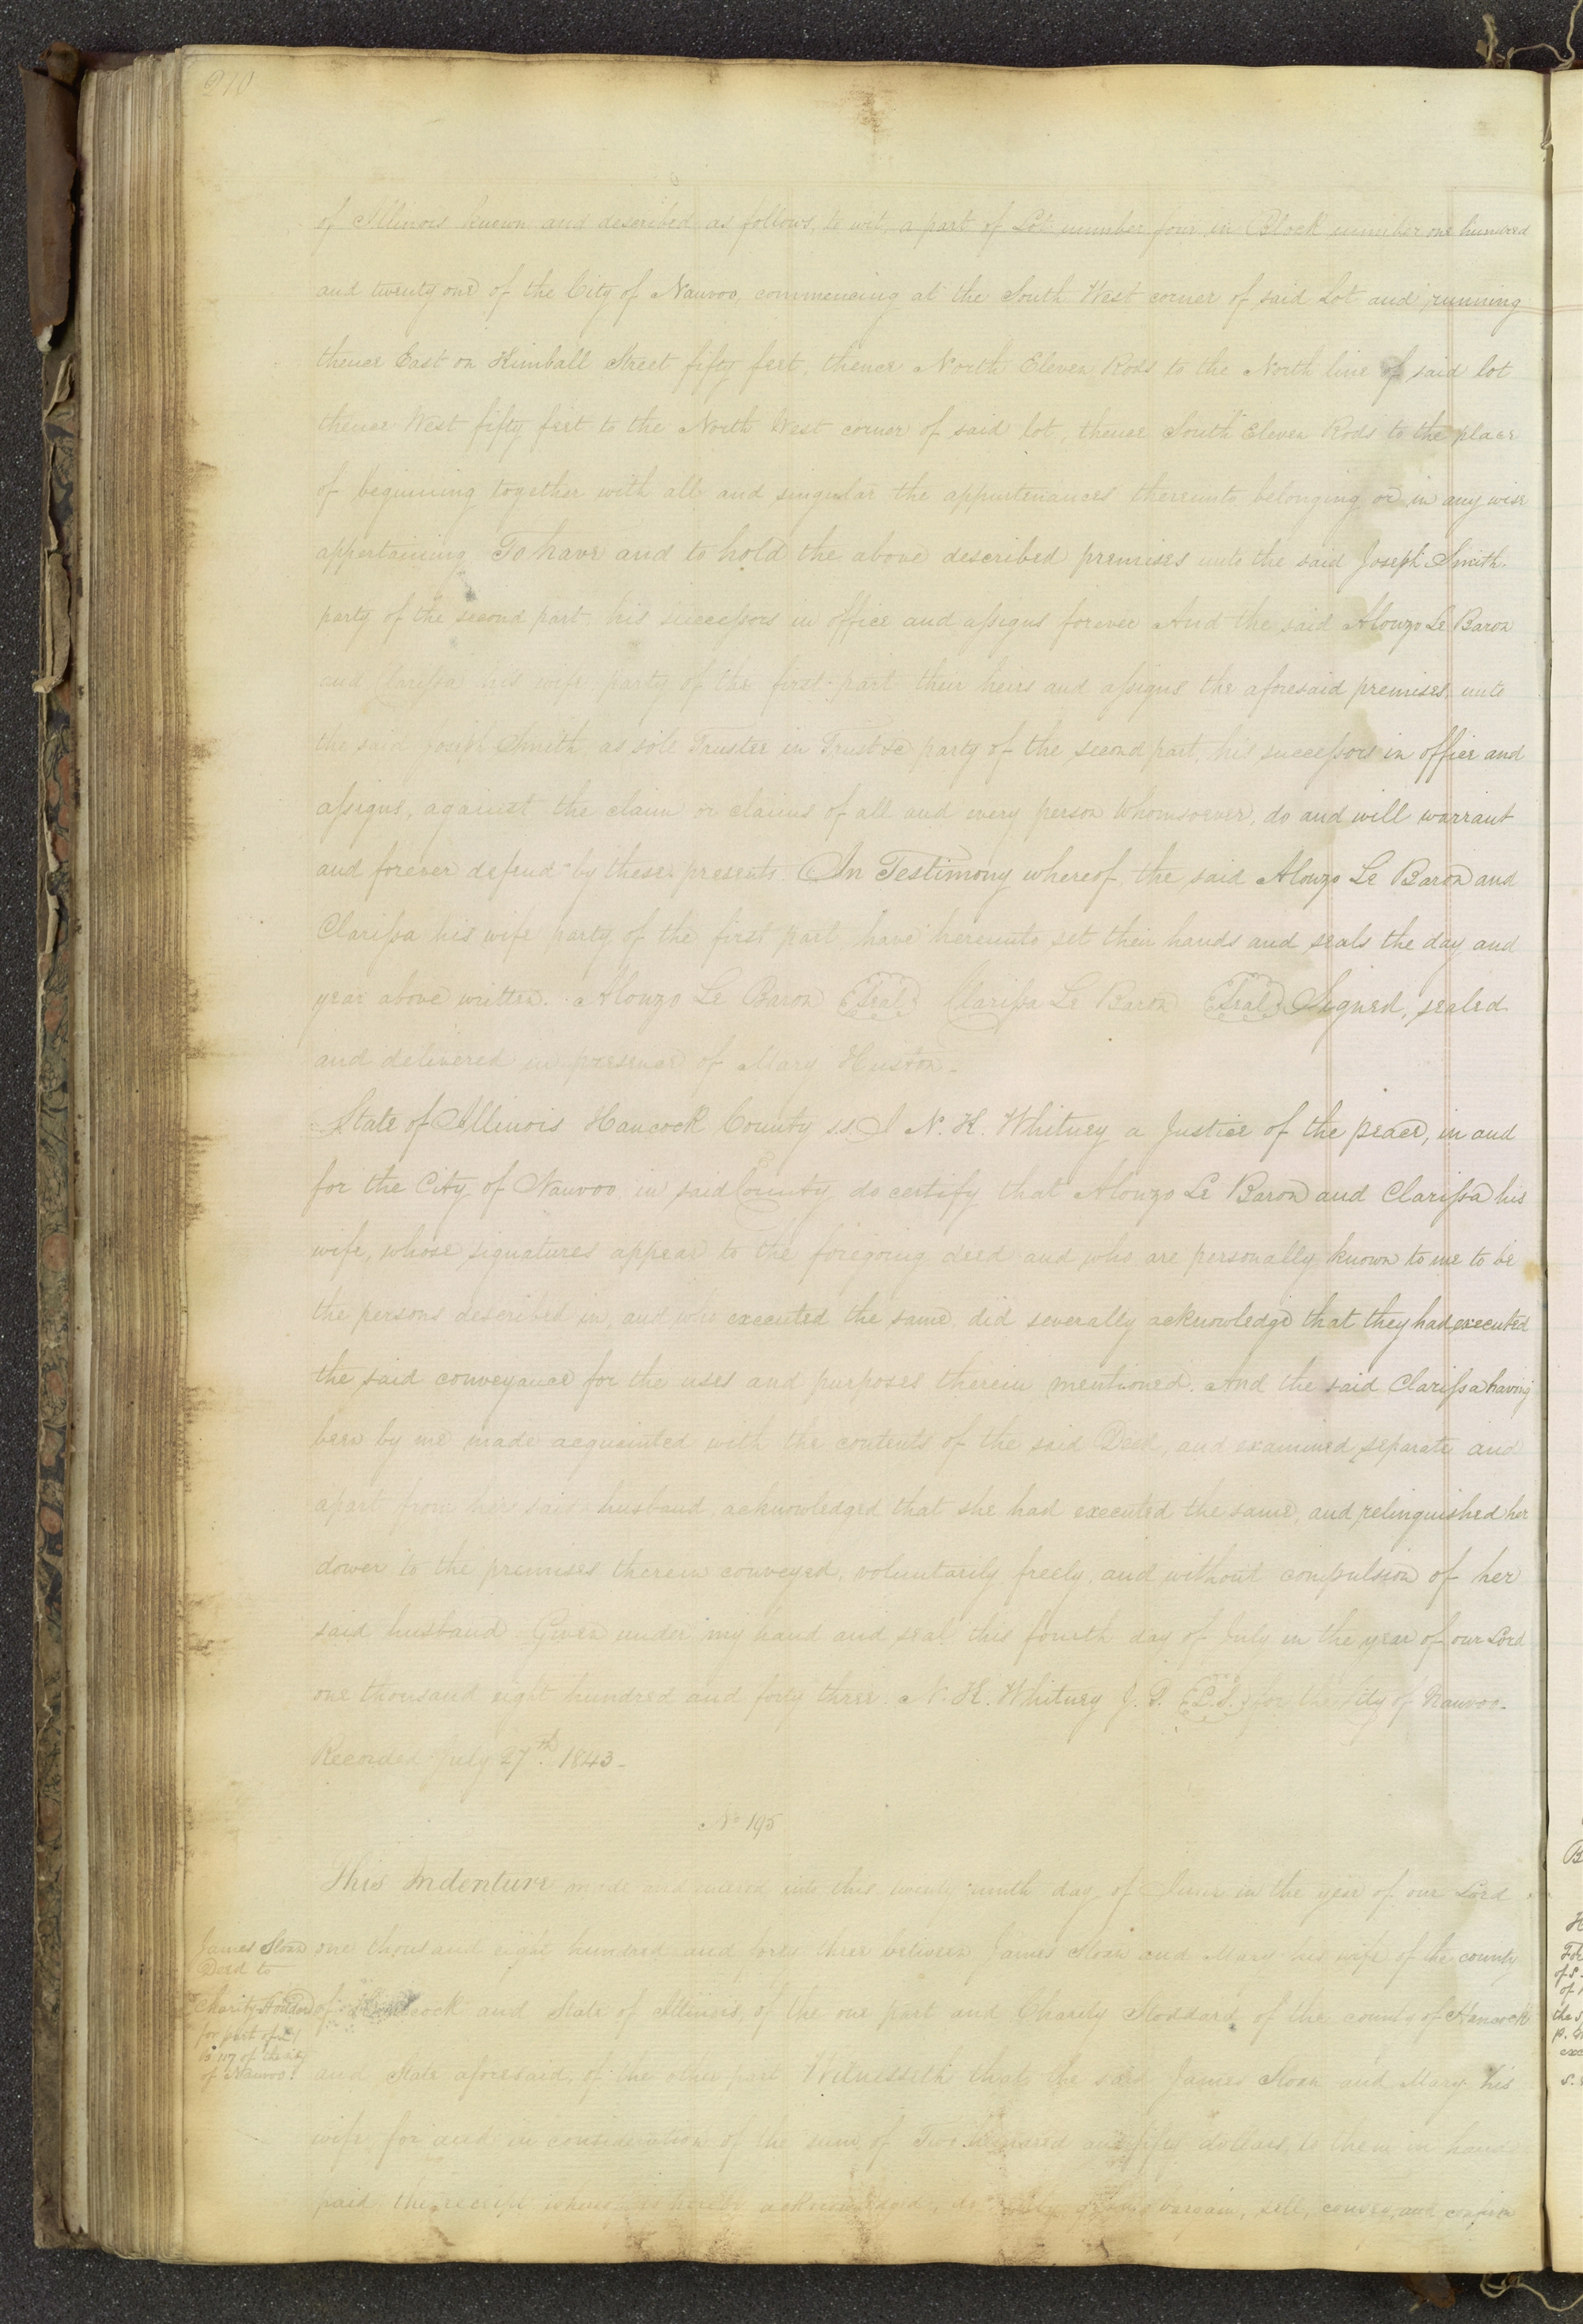 210
of Illinois known and described as follows, to wit, a part of Lot number four in Block number one hundred
and twenty one of the City of Nauvoo, commencing at the South West corner of said Lot and running
thence East on Kimball Street fifty feet, thence North Eleven Rods to the North line of said lot
thence West fifty feet to the North West corner of said lot, thence South Eleven Rods to the place
of beginning together with all and singular the appurtenances thereunto belonging or in any wise
appertaining. To have and to hold the above described premises unto the said Joseph Smith
party of the second part, his successors in office and assigns forever And the said Alonzo Le Baron
and Clarissa his wife party of the first part their heirs and assigns the aforesaid premises, unto
the said Joseph Smith as sole Trustee in Trust &c party of the second part, his successors in office and
assigns, against the claim or claims of all and every person whomsoever, do and will warrant
and forever defend by these presents. In Testimony whereof, the said Alonzo Le Baron and
Clarissa his wife party of the first part, have hereunto set their hands and seals the day and
year above written. Alonzo Le Baron Seal Clarissa Le Baron Seal Signed, sealed
and delivered in presence of Mary Huston.
State of Illinois Hancock County s.s. I N. K. Whitney a Justice of the peace, in and
for the City of Nauvoo in said County, do certify that Alonzo Le Baron and Clarissa his
wife, whose signatures appear to the foregoing deed and who are personally known to me to be
the persons described in, and who executed the same, did severally acknowledge that they had executed
the said conveyance for the uses and purposes therein mentioned. And the said Clarissa having
been by me made acquainted with the contents of the said Deed, and examined separate and
apart from her said husband acknowledged that she had executed the same, and relinquished her
dower to the premises therein conveyed, voluntarily freely, and without compulsion of her
said husband. Given under my hand and seal this fourth day of July in the year of our Lord
one thousand eight hundred and forty three. N. K. Whitney J. P. L.S. for the City of Nauvoo.
Recorded July 27th. 1843.
No 195
This Indenture made and entered into this twenty ninth day of June in the year of our Lord
James Sloan
Deed to
Charity Stoddard
for part of L 1
B 117 of the city
of Nauvoo.
one thousand eight hundred and forty three between James Sloan and Mary his wife of the county
of Hancock and State of Illinois, of the one part and Charity Stoddard of the county of Hancock
and State aforesaid, of the other part Witnesseth that the said James Sloan and Mary his
wife for and in consideration of the sum of Two hundred and fifty dollars, to them in hand
paid, the receipt whereof is hereby acknowledged, do bargain, sell, convey, and confirm